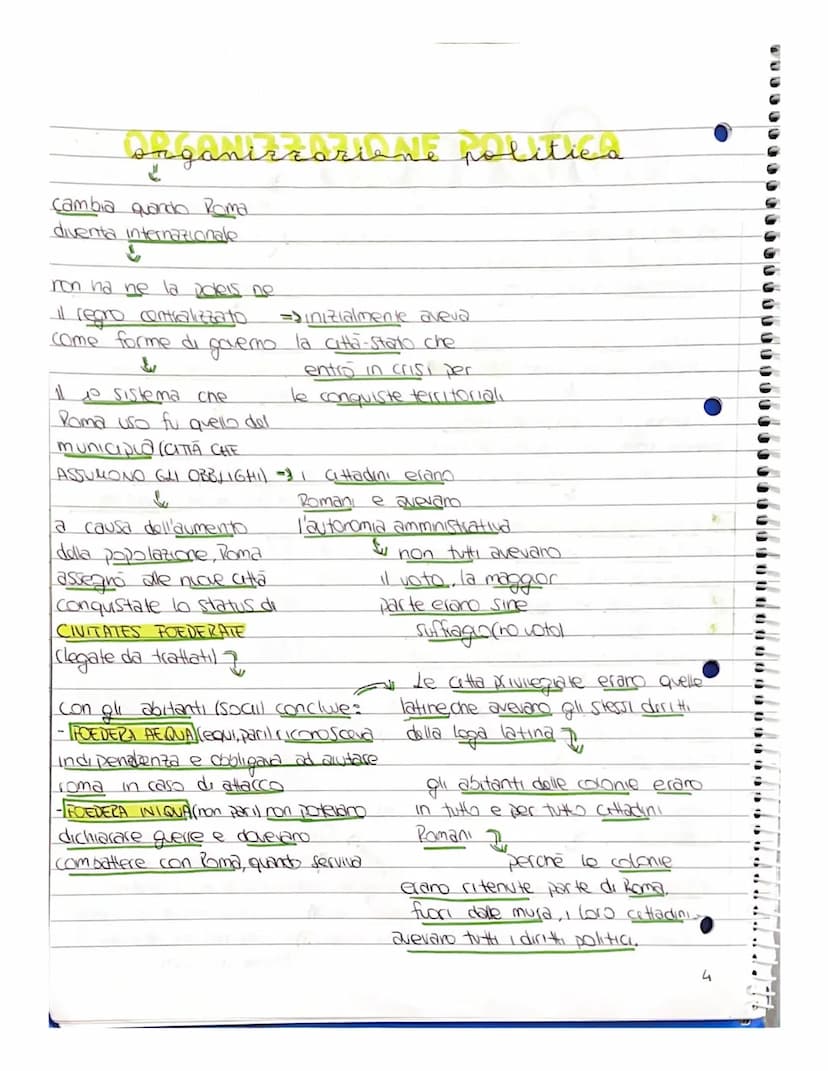 ORGANIZZAZIONE POLITICA
organizzazione politica
cambia quando Roma
diventa internazionale
non ha ne la poleis ne
il regno centralizzato => inizialmente aveva
come forme di governo la città-stato che
entrò in crisi per
il 1º sistema che le conquiste territoriali
Roma uso fu quello del
municipio (CITTÀ CHE
ASSUMONO GLI OBBLIGHI) => i cittadini erano
Romani e avevano
a causa dell'aumento l'autonomia amministrativa
della popolazione, Roma non tutti avevano
assegnò alle nuove città il voto, la maggior
conquistate lo status di parte erano sine
CIVITATES FOEDERATE suffragio (no voto)
(legate da trattati)
Le città privilegiate erano quelle
con gli abitanti (socii) conclude: latine che avevano gli stessi diritti
- FOEDERA AEQUA (equi, pari) riconosceva della lega latina
indipendenza e obbligava ad aiutare
roma in caso di attacco gli abitanti delle colonie erano
- FOEDERA INIQUA (non pari) non potevano in tutto e per tutto cittadini
dichiarare guerre e dovevano Romani
combattere con Roma, quando serviva perchè le colonie
erano ritenute parte di Roma,
fuori dalle mura, i loro cittadini
avevano tutti i diritti politici.
4